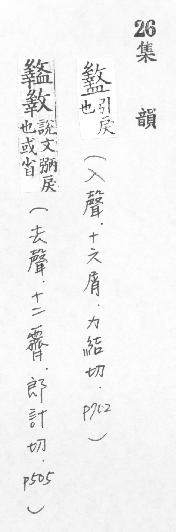 26集韻
盭引戾也(入聲.十六屑.力結切.p702)
盭說文弼戾也或省(去聲.十二霽.郎計切.p505)